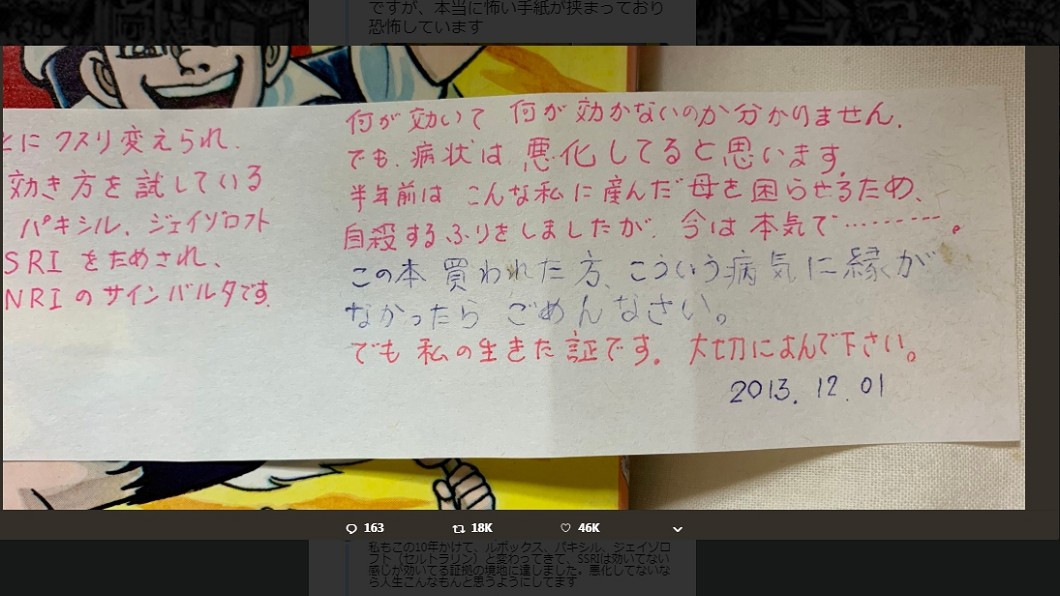 ですが、本当に怖い手紙が挟まっており
恐怖しています
とに クスリ変えられ.
効き方を試している
パキシル、ジェイゾロフト
SRI をためされ、
NRI のサインバルタです.
何が効いて 何が効かないのか分かりません.
でも、病状は 悪化してると思います.
半年前は こんな私に産んだ 母を困らせるため、
自殺するふりをしましたが、今は本気で………。
この本 買われた方、こういう病気に縁が
なかったら ごめんなさい。
でも 私の生きた証です. 大切によんで下さい。
2013. 12. 01
163 18K 46K
私もこの10年かけて、ルボックス、パキシル、ジェイゾロ
フト（セルトラリン）と変わってきて、SSRIは効いてない
感じが効いてる証拠の境地に達しました。悪化してないな
ら人生こんなもんと思うようにしてます